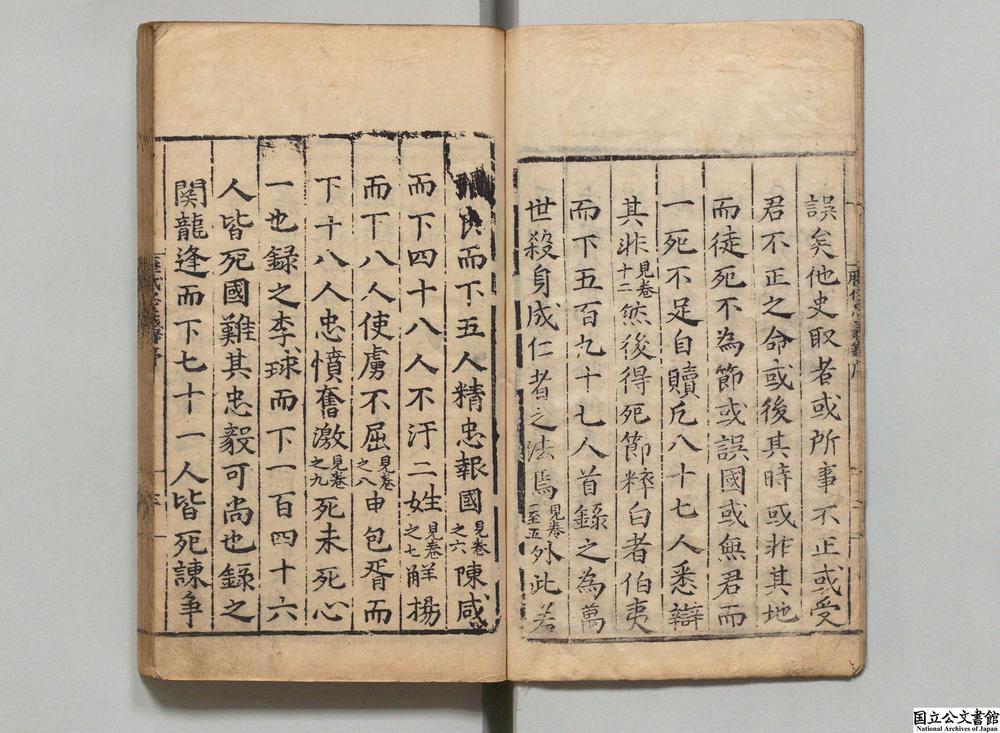 誤矣他史取者或所事不正或受
君不正之命或後其時或非其地
而徒死不為節或誤國或無君而
一死不足自贖凡八十七人悉辯
其非見卷十二然後得死節粹白者伯夷
而下五百九十七人首錄之為萬
世殺身成仁者之法焉見卷一至五外此若
良而下五人精忠報國見卷之六陳咸
而下四十八人不汙二姓見卷之七解揚
而下八人使虜不屈見卷之八申包胥而
下十八人忠憤奮激見卷之九死未死心
一也錄之李球而下一百四十六
人皆死國難其忠毅可尚也錄之
関龍逄而下七十一人皆死諫爭
国立公文書館
National Archives of Japan